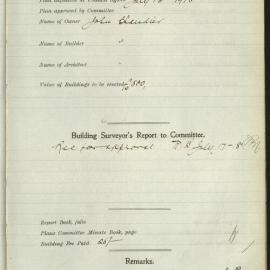 Plan approved by Committee
Name of Owner John Chandler
Name of Builder "
Name of Architect "
Value of Buildings to be erected £500
Building Surveyor's Report to Committee.
Rec for approval July 17-
Report Book, folio
Plans Committee Minute Book, page
Building Fee Paid 20/-
Remarks.